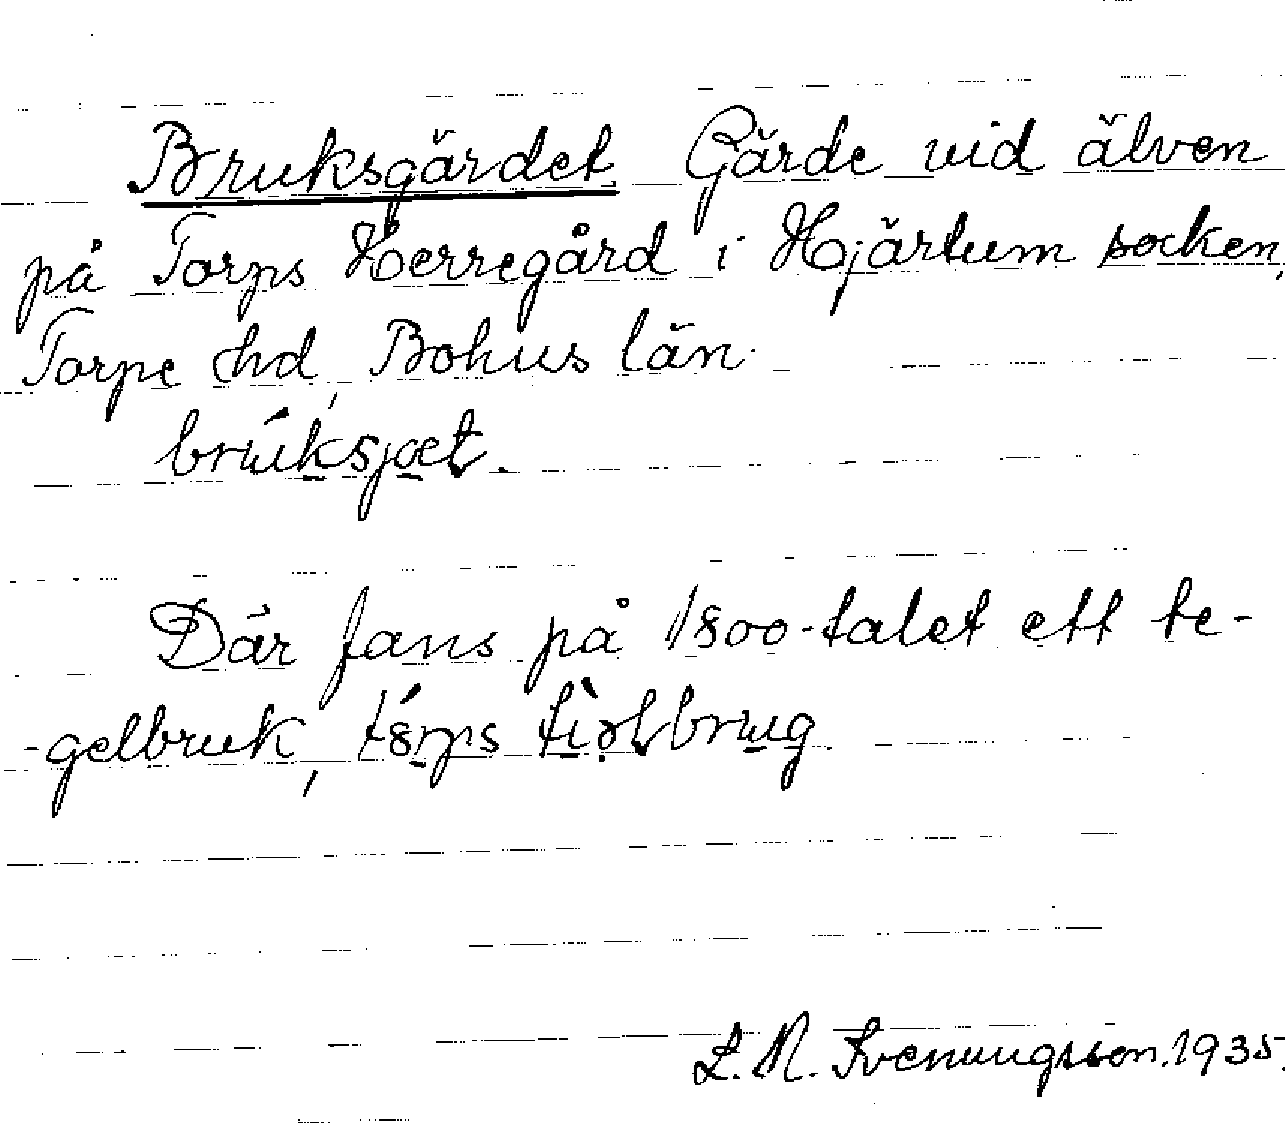 Bruksgärdet. Gärde vid älven
på Torps Herregård i Hjärtum socken,
Torpe hd, Bohus län.
Där fans på 1800-talet ett te-
-gelbruk,
L. N. Svenungsson. 1935.